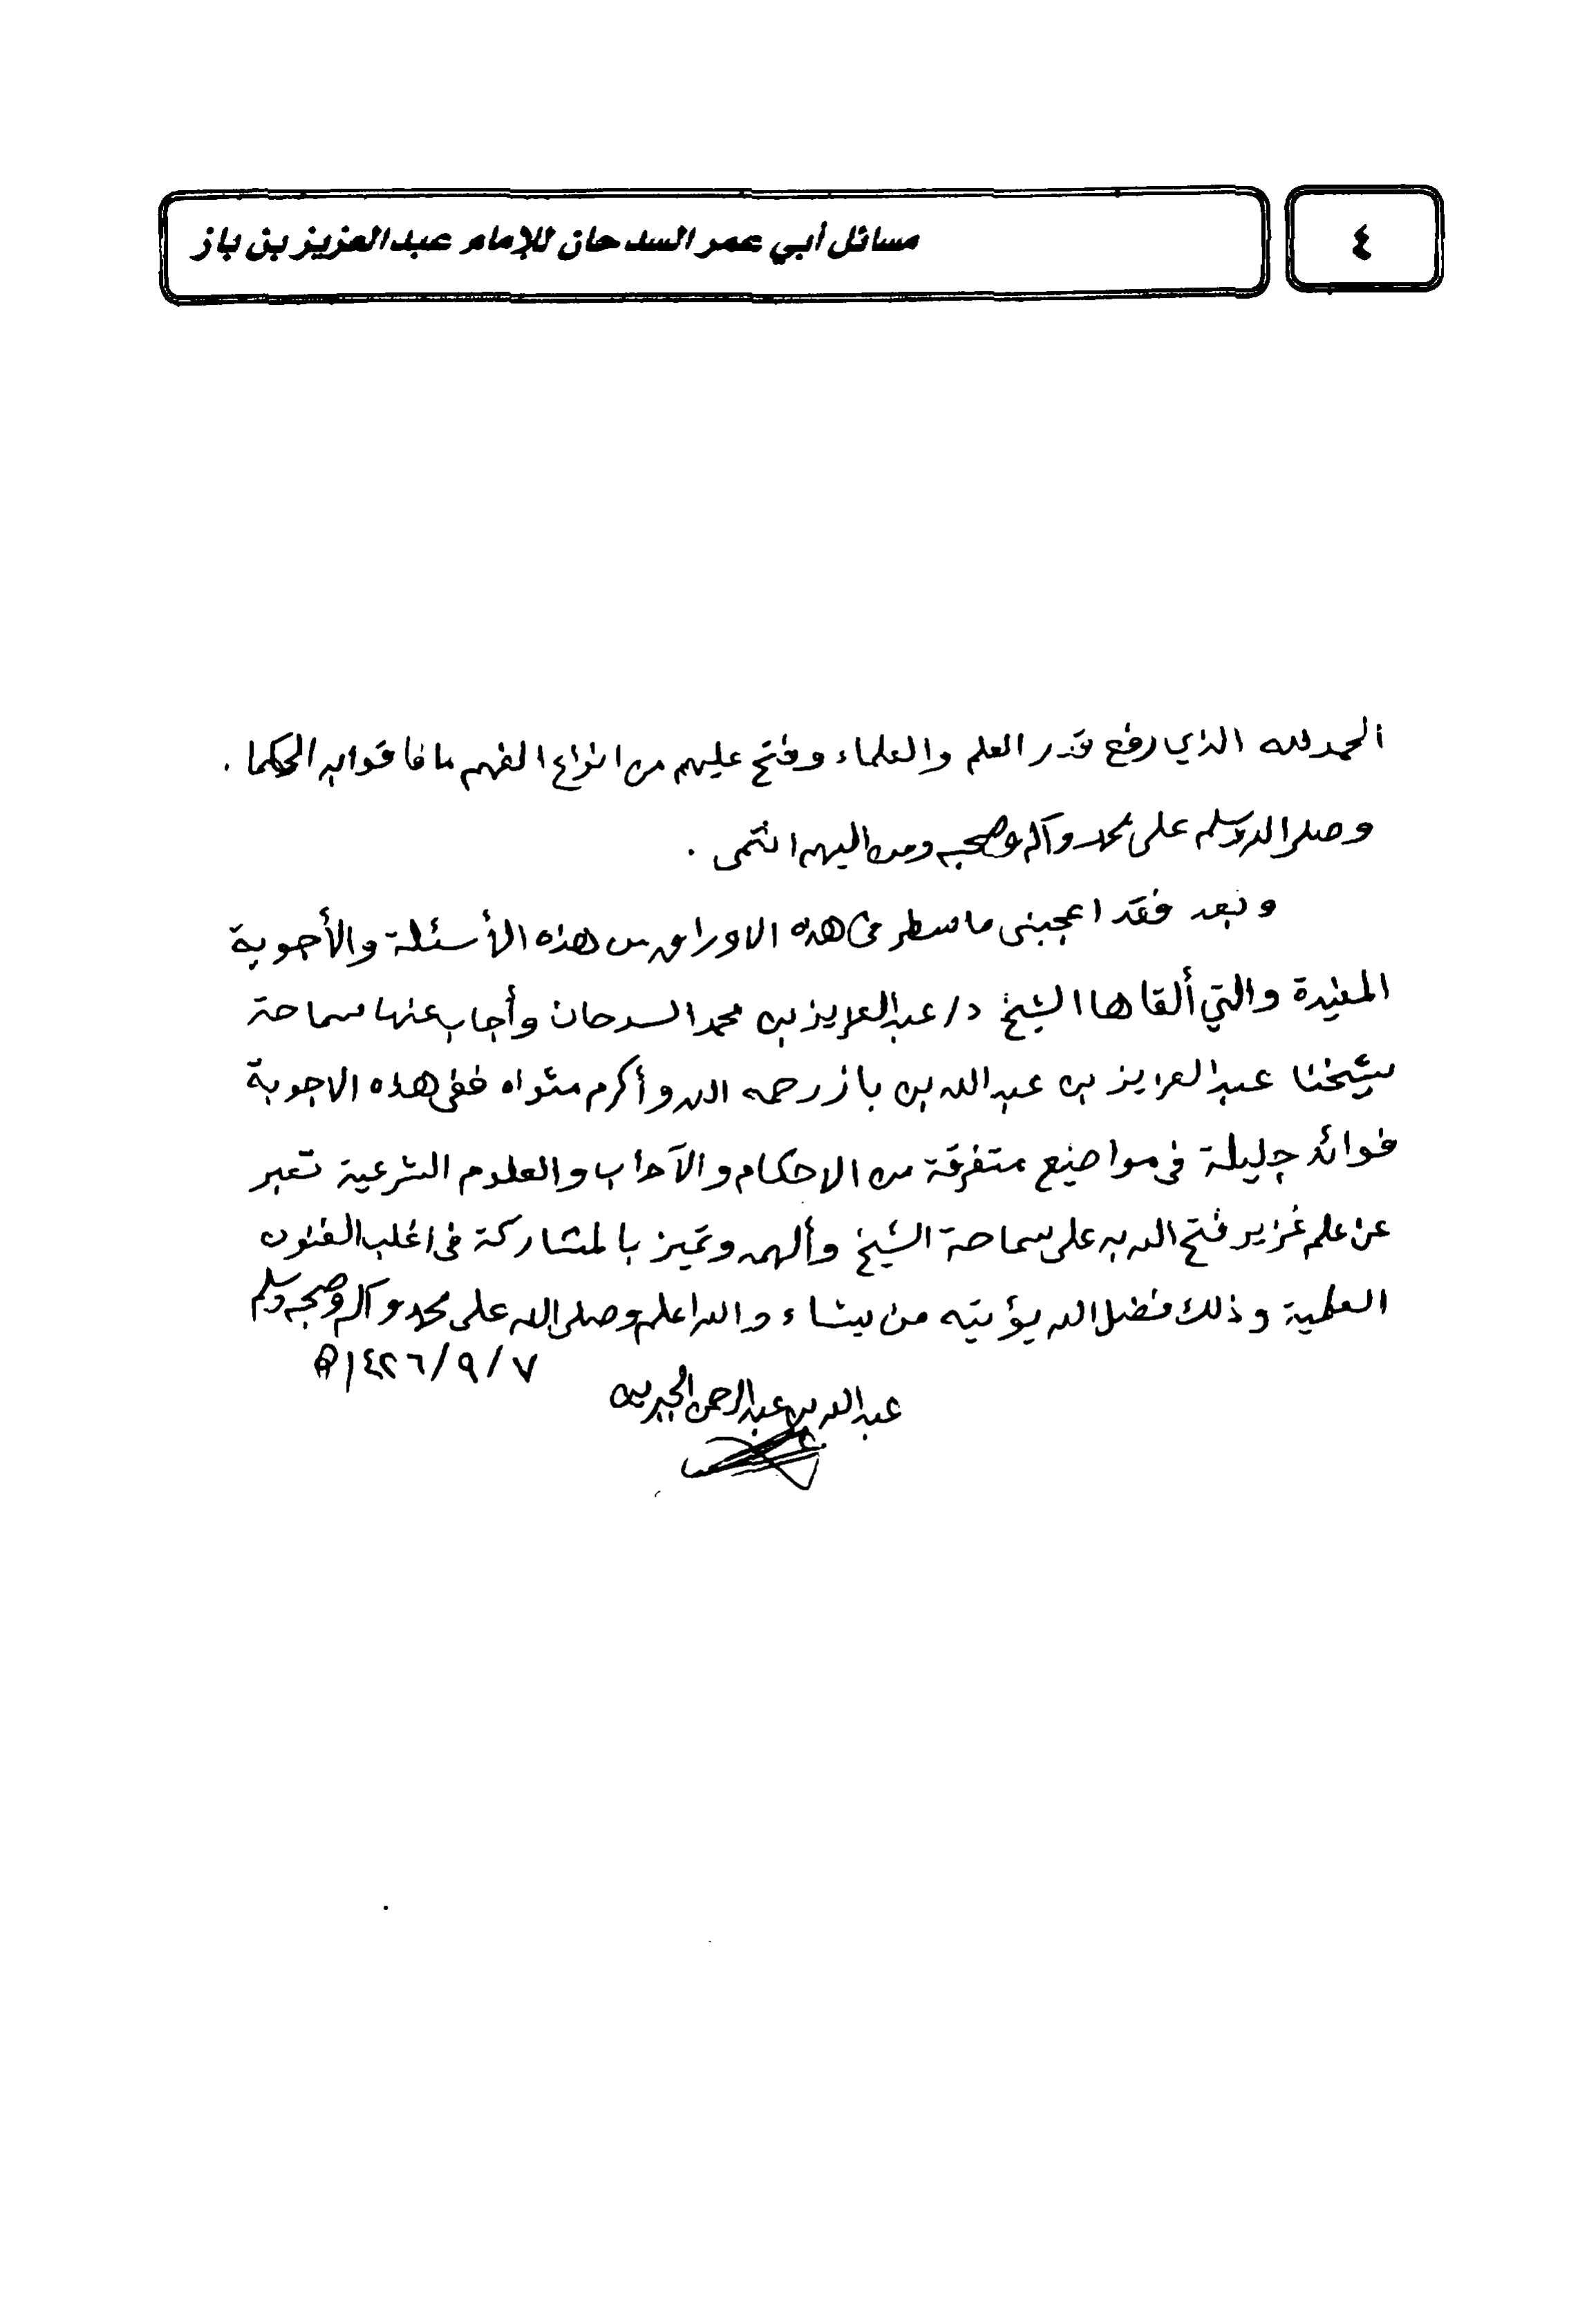 ٤
مسائل أبي عمر السدحان للإمام عبدالعزيز بن باز
الحمد لله الذي رفع قدر العلم والعلماء وفتح عليهم من انواع الفهم ما فاقوا به الحكما .
وصلى الله وسلم على محمد وآله وصحبه ومن اليهم انتمى .
وبعد فقد اعجبنى ما سطر فى هذه الاوراق من هذه الأسئلة والأجوبة
المفيدة والتي ألقاها الشيخ د/ عبدالعزيز بن محمد السدحان وأجاب عنها سماحة
شيخنا عبدالعزيز بن عبدالله بن باز رحمه الله وأكرم مثواه ففى هذه الاجوبة
فوائد جليلة فى مواضيع متفرقة من الاحكام والآداب والعلوم الشرعية تعبر
عن علم غزير فتح الله به على سماحة الشيخ وألهمه وتميز بالمشاركة فى اغلب الفنون
العلمية وذلك فضل الله يؤتيه من يشاء والله اعلم وصلى الله على محمد وآله وصحبه وسلم
٧/٩/١٤٢٦هـ
عبدالله بن عبدالرحمن الجبرين